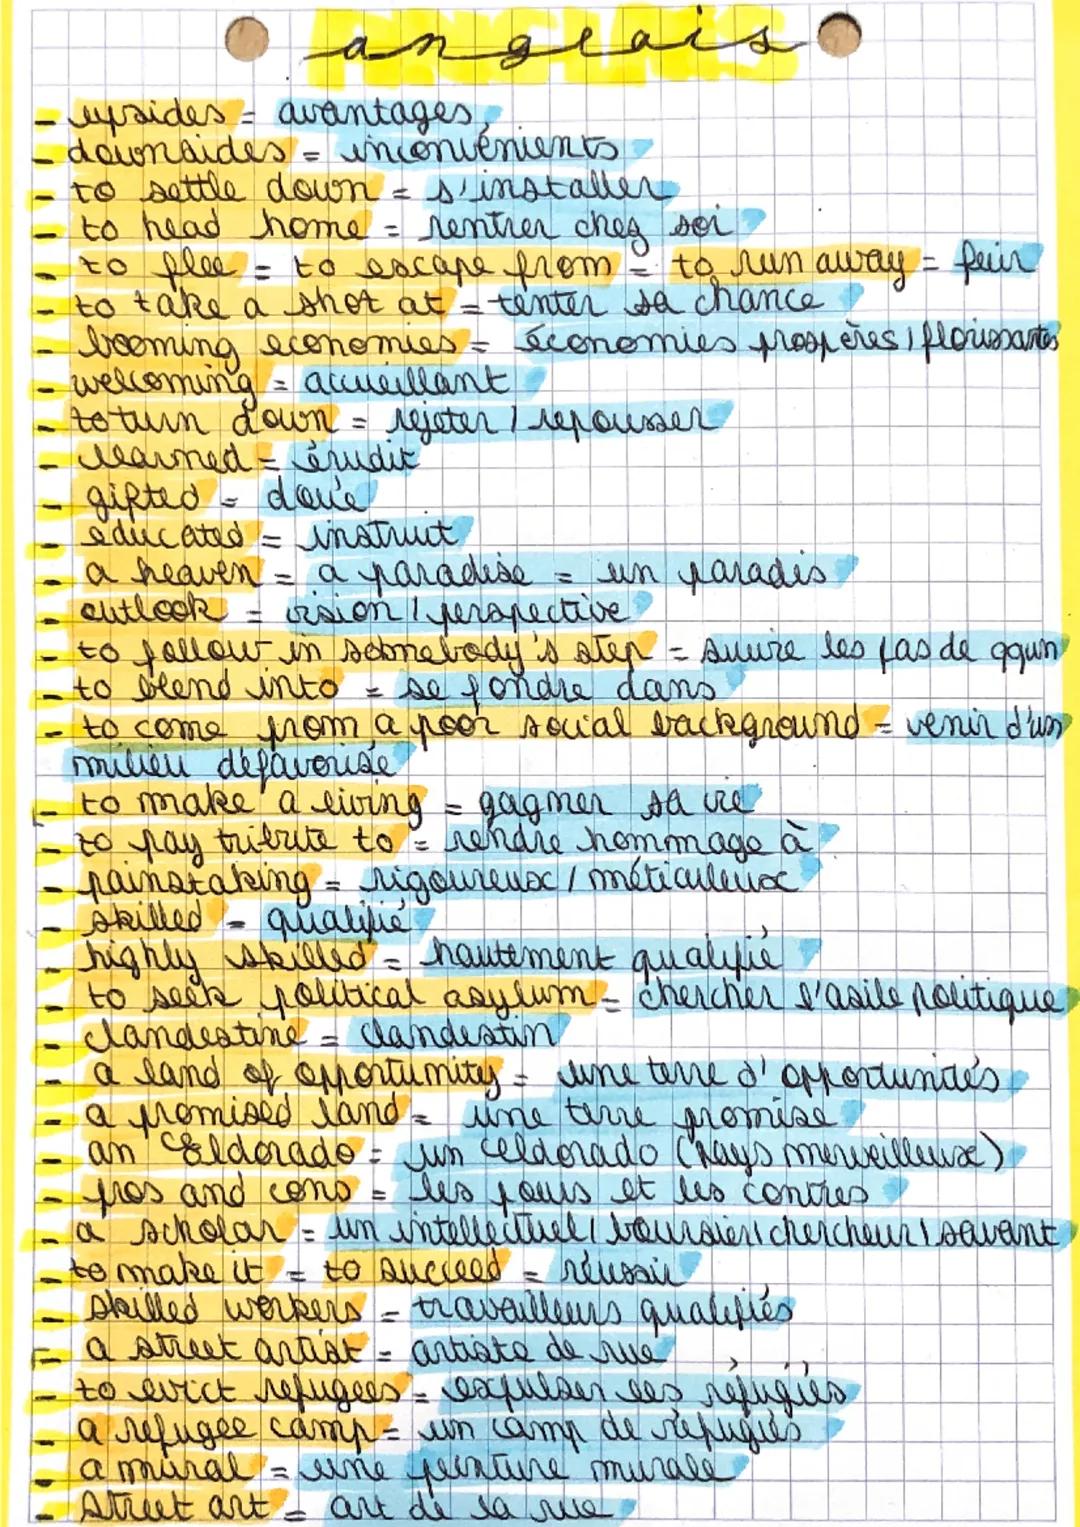 anglais
- upsides = avantages
- downsides = inconvénients
- to settle down = s'installer
- to head home = rentrer chez soi
- to flee = to escape from = to run away = fuir
- to take a shot at = tenter sa chance
- booming economies = économies prospères / florissantes
- welcoming = accueillant
- to turn down = rejeter / repousser
- learned = érudit
- gifted = doué
- educated = instruit
- a heaven = a paradise = un paradis
- outlook = vision / perspective
- to follow in somebody's step = suivre les pas de qqun
- to blend into = se fondre dans
- to come from a poor social background = venir d'un
milieu défavorisé
- to make a living = gagner sa vie
- to pay tribute to = rendre hommage à
- painstaking = rigoureux / méticuleux
- skilled = qualifié
- highly skilled = hautement qualifié
- to seek political asylum = chercher l'asile politique
- clandestine = clandestin
- a land of opportunity = une terre d'opportunités
- a promised land = une terre promise
- an Eldorado = un eldorado (pays merveilleux)
- pros and cons = les pours et les contres
- a scholar = un intellectuel / boursier / chercheur / savant
- to make it = to succeed = réussir
- skilled workers = travailleurs qualifiés
- a street artist = artiste de rue
- to evict refugees = expulser les réfugiés
- a refugee camp = un camp de réfugiés
- a mural = une peinture murale
- Street art = art de la rue